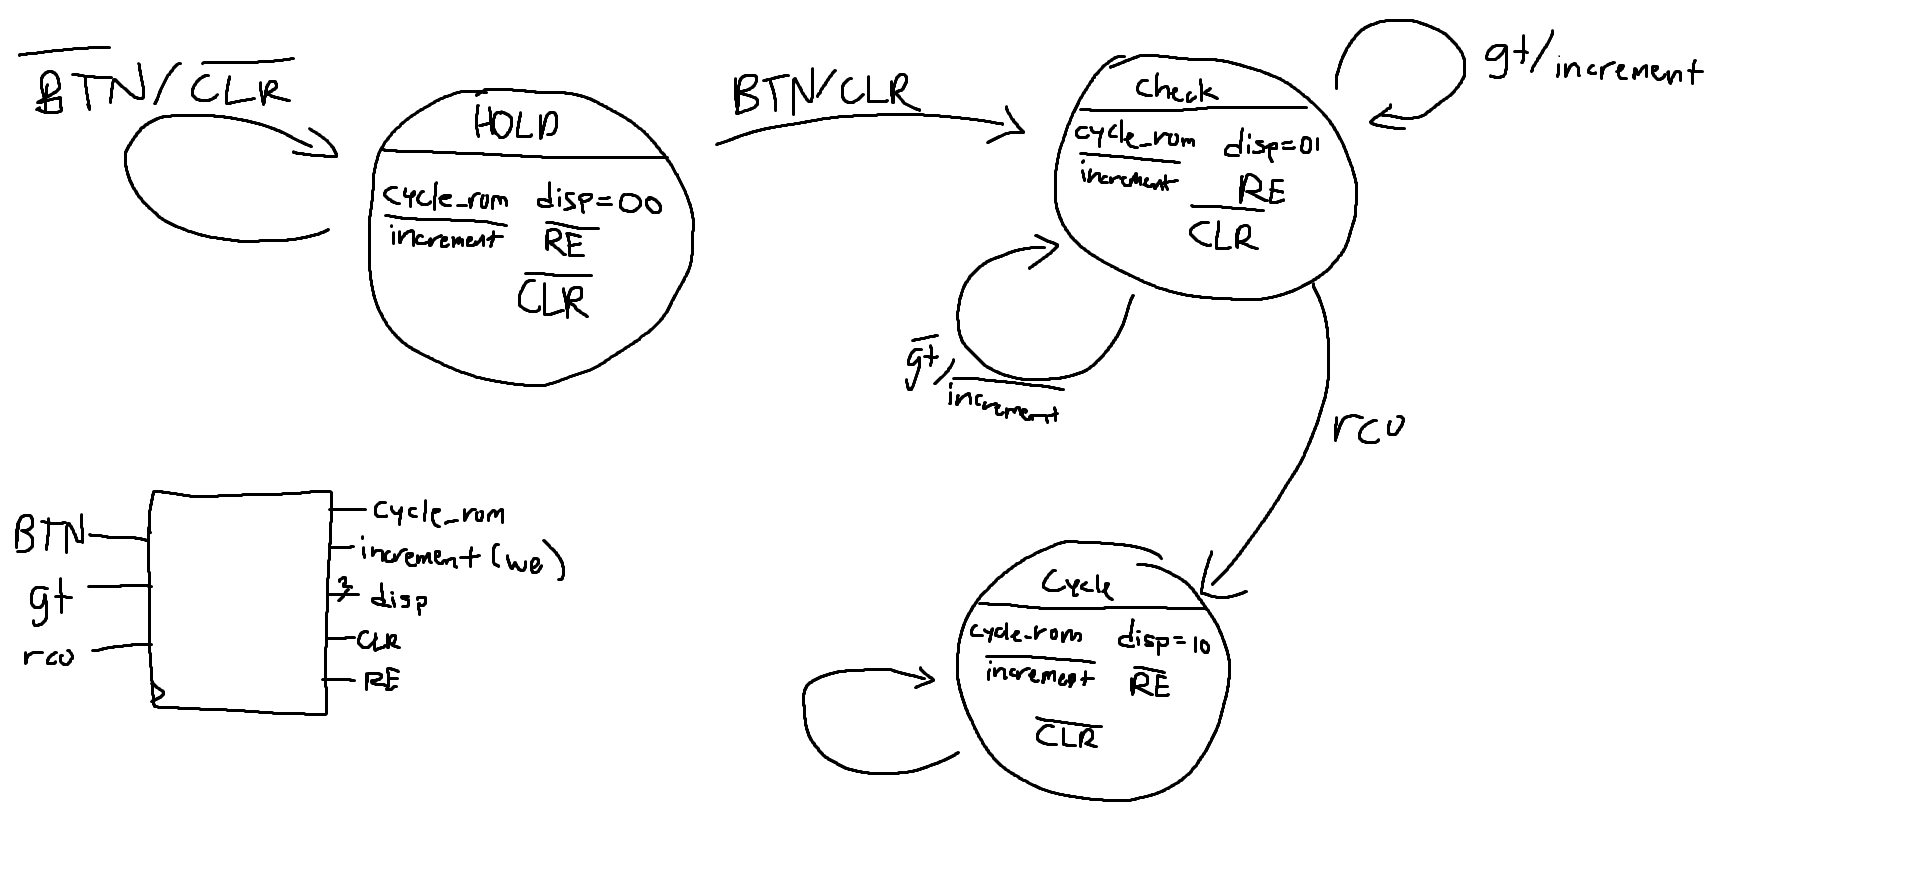 B̅T̅N̅/C̅L̅R̅
HOLD
cycle_rom disp=00
i̅n̅c̅r̅e̅m̅e̅n̅t̅ R̅E̅
C̅L̅R̅
BTN/CLR
Check
cycle_rom disp=01
i̅n̅c̅r̅e̅m̅e̅n̅t̅ RE
C̅L̅R̅
gt/increment
g̅t̅/i̅n̅c̅r̅e̅m̅e̅n̅t̅
rco
Cycle
cycle_rom disp=10
i̅n̅c̅r̅e̅m̅e̅n̅t̅ R̅E̅
C̅L̅R̅
BTN
gt
rco
cycle_rom
increment (we)
disp
CLR
RE